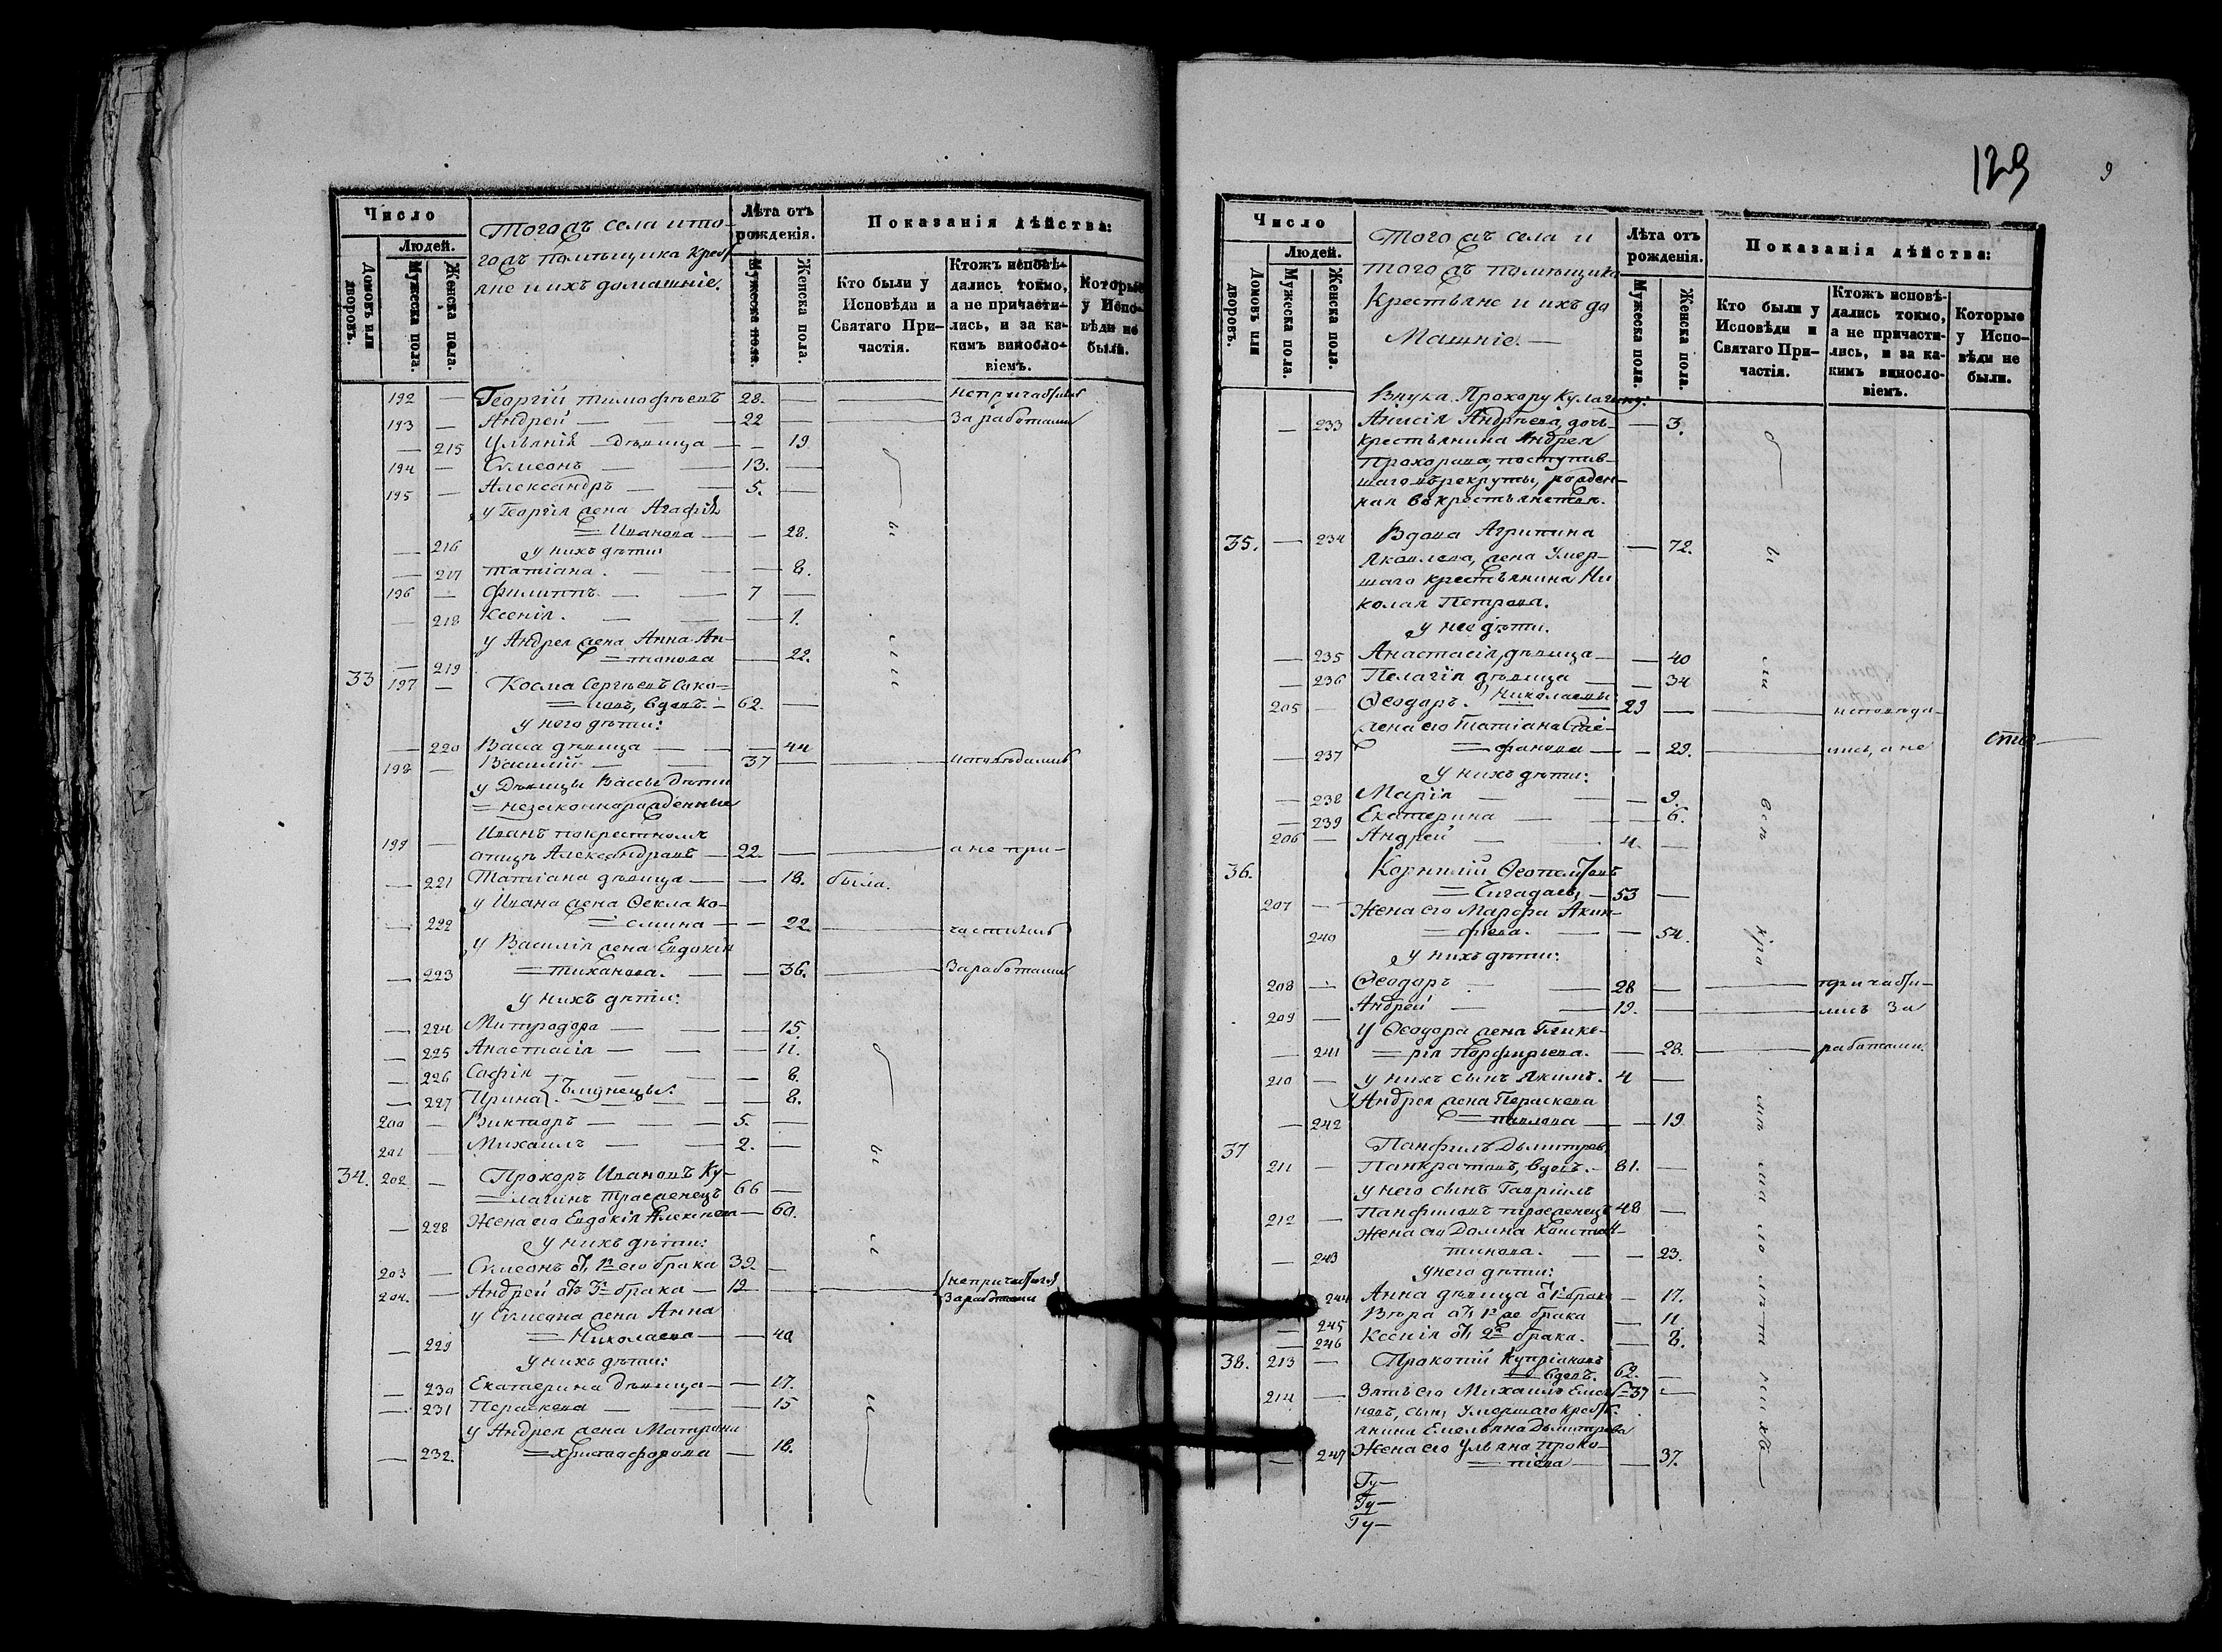 Число
Людей.
Домовъ или дворовъ.
Мужеска пола.
Женска пола.
Тогожъ села и то-
гожъ помѣщика крест
яне и ихъ домашніе.
Лѣта отъ рожденія.
Мужеска пола.
Женска пола.
Показанія дѣйства:
Кто были у Исповѣди и Святаго При-частія.
Ктожъ исповѣ-дались токмо, а не причасти-лись, и за ка-кимъ винословіемъ.
Которые у Испо-вѣди не были.
192 — Георгій Тимофѣевъ 28. — — непричастились
193 — Андрей — — 22 — — За работами
— 215 Ульянія — Дѣвица — — 19.
194 — Сѵмеонъ — — 13. —
195 — Александръ — — 5. —
у Георгія жена Агафія
— 216 = Иванова — — 28.
у нихъ дѣти
— 217 Татіана. — — — 8.
196 — Филиппъ — — 7 —
— 218 Ксенія. — — — 1.
у Андрея жена Анна Ан-
— 219 = тонова — 22.
33 197 — Косма Сергѣевъ Соко-
= ловъ, вдовъ. — 62. —
у него дѣти:
— 220 Васса дѣвица — — — 44
198 — Василій — — 37 — — исповѣдались
у Дѣвицы Вассы Дѣти
= незаконнорожденные
Иванъ по крестномъ
199 — отцѣ Александровъ — 22. — — а не при-
— 221 Татіана дѣвица — — 18. была.
у Ивана жена Ѳекла Ко-
— 222 = смина — — 22 — частились
у Василія жена Евдокія
— 223 = Тиханова. — — 36. — За работами
у нихъ дѣти:
— 224 Митродора — — — 15.
— 225 Анастасія — — — 11.
— 226 Софія — — — 8.
— 227 Ирина близнецы. — — 8.
200 — Викторъ — — — 5. —
201 — Михаилъ — — 2. —
34. 202 — Прохоръ Ивановъ Ку-
= лагинъ троеженецъ 66 —
— 228 Жена его Евдокія Алексѣева — 60.
у нихъ дѣти:
203 — Сѵмеонъ отъ 1го его брака 39. —
204. — Андрей отъ 3го брака — 19 — — непричастился За работами
у Сѵмеона жена Анна
— 229 = Николаева — — 40
у нихъ дѣти:
— 230 Екатерина дѣвица — — 17.
— 231 Пераскева — — — 15
у Андрея жена Матрона
— 232. = Христофорова — 18.
129
9
Число
Людей.
Домовъ или дворовъ.
Мужеска пола.
Женска пола.
Тогожъ села и
тогожъ помѣщика
Крестьяне и ихъ до
машніе. —
Лѣта отъ рожденія.
Мужеска пола.
Женска пола.
Показанія дѣйства:
Кто были у Исповѣди и Святаго При-частія.
Ктожъ исповѣ-дались токмо, а не причасти-лись, и за ка-кимъ винословіемъ.
Которые у Испо-вѣди не были.
Внука Прохору Кулагину:
— 233 Анисія Андрѣева, дочь — 3.
крестьянина Андрея
Прохорова, поступив-
шаго въ рекруты, рожден-
ная въ крестьянствѣ.
35. — 234 Вдова Агрипина — 72.
Яковлева, жена Умер-
шаго крестьянина Ни
колая Петрова.
У нее дѣти.
— 235 Анастасія, дѣвица — — 40
— 236 Пелагія дѣвица — — 34
205 — Ѳеодоръ. Николаевы: 29 — — исповѣда-
жена его Татіана Сте-
— 237 = фанова — — 29. — лись, а не
У нихъ дѣти:
— 238 Марія — — — 9.
— 239 Екатерина — — — 6.
206 — Андрей — 4. —
36. Корнилій
207 — = Чигадаевъ, — 53 —
Жена его Марфа Акин-
240 = фіева. — — 54.
у нихъ дѣти:
208 — Ѳеодоръ — — 28 — — причасти-
209 — Андрей — — 19. — — лись За
У Ѳеодора жена Глике-
— 241 = рія Порфирьева. — 28. — работами.
210 — у нихъ сынъ Якимъ. 4 —
У Андрея жена Пераскева
— 242 = Павлова — — 19
37 Панфилъ Дьмитріевъ
211 — Панкратовъ, вдовъ. — 81. —
у него сынъ Гавріилъ
212 — Панфиловъ троеженецъ 48 —
Жена его Домна Констан-
— 243 тинова. — — 23.
У него дѣти:
244 Анна дѣвица отъ 1го брака — 17.
— 245 Вѣра отъ 1го же брака — 11.
— 246 Ксенія отъ 2го брака. — 8.
38. 213 — Прокопій Купріановъ
вдовъ. 62. —
214 — Зять его Михаилъ Емелья- 37 —
новъ, сынъ Умершаго крест.
янина Емельяна Дьмитріева
— 247 Жена его Ульяна Проко-
= піева — — 37.
Ту —
Ту —
Ту —